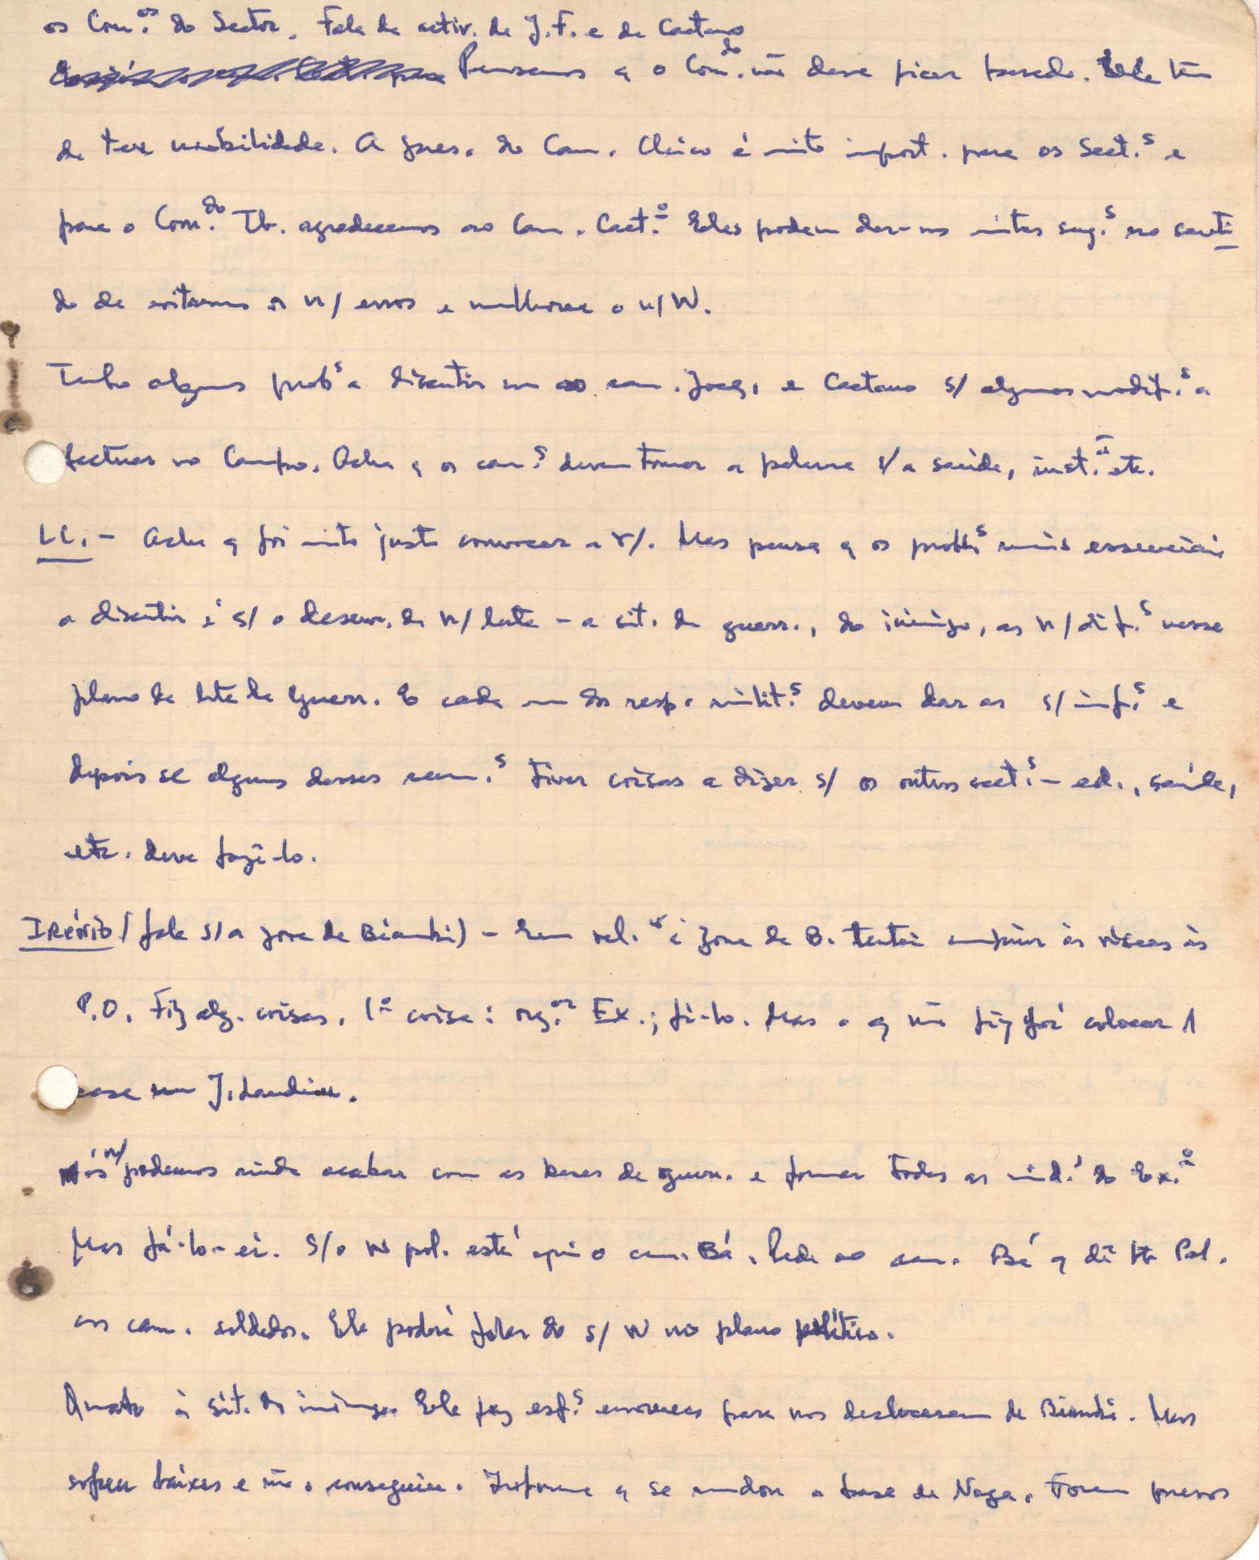 os Com.os do Sector. Fala da activ. de J.F. e de Caetano
Pensamos q o Com.do não deve ficar parado. Ele tem
de ter mobilidade. A pres. do Cam. Chico é mito import. para os Sect.s e
para o Com.do Tb. agradecemos ao Cam. Caet.º Eles podem dar-nos mitas sug.s no senti
do de evitarmos os n/ erros e melhorar o n/W.
Tenho alguns prob.s a discutir com os cam. Joaq. e Caetano s/ algumas modif.s a
fectuar no Campo. Acha q os cam.s devem tomar a palavra s/a saúde, inst.ão etc.
LC. - Acha q foi mito justo convocar a r/. Mas pensa q os probl.s mais essenciais
a discutir é s/ o desenv. da n/ luta - a sit. da guerr., do inimigo, as n/ dif.s nesse
plano da luta de Guerr. E cada um dos resp. milit.s devem dar as s/ inf.s e
depois se alguns desses cam.s tiver coisas a dizer s/ os outros sect.s - ed., saúde,
etc. deve fazê-lo.
IRÉNIO (fala s/a zona de Biambi) - Em rel.ão à zona de B. tentei cumprir às riscas as
P.O. Fiz alg. coisas. 1ª coisa: org.ar Ex.; fi-lo. Mas o q não fiz foi colocar 1
base em J. Landim.
Nós n/ podemos ainda acabar com as bases de guerr. e formar todas as unid.s do Ex.º
Mas fá-lo-ei. S/o W pol. está aqui o cam. Bá. Pede ao cam. Bá q dê W Pol.
aos cam. soldados. Ele poderá falar do s/ W no plano político.
Quanto à sit. do inimigo. Ele fez esf.s enormes para nos deslocarem de Biambi. Mas
sofreu baixas e não o conseguiu. Informa q se mudou a base de Naga. Foram presos